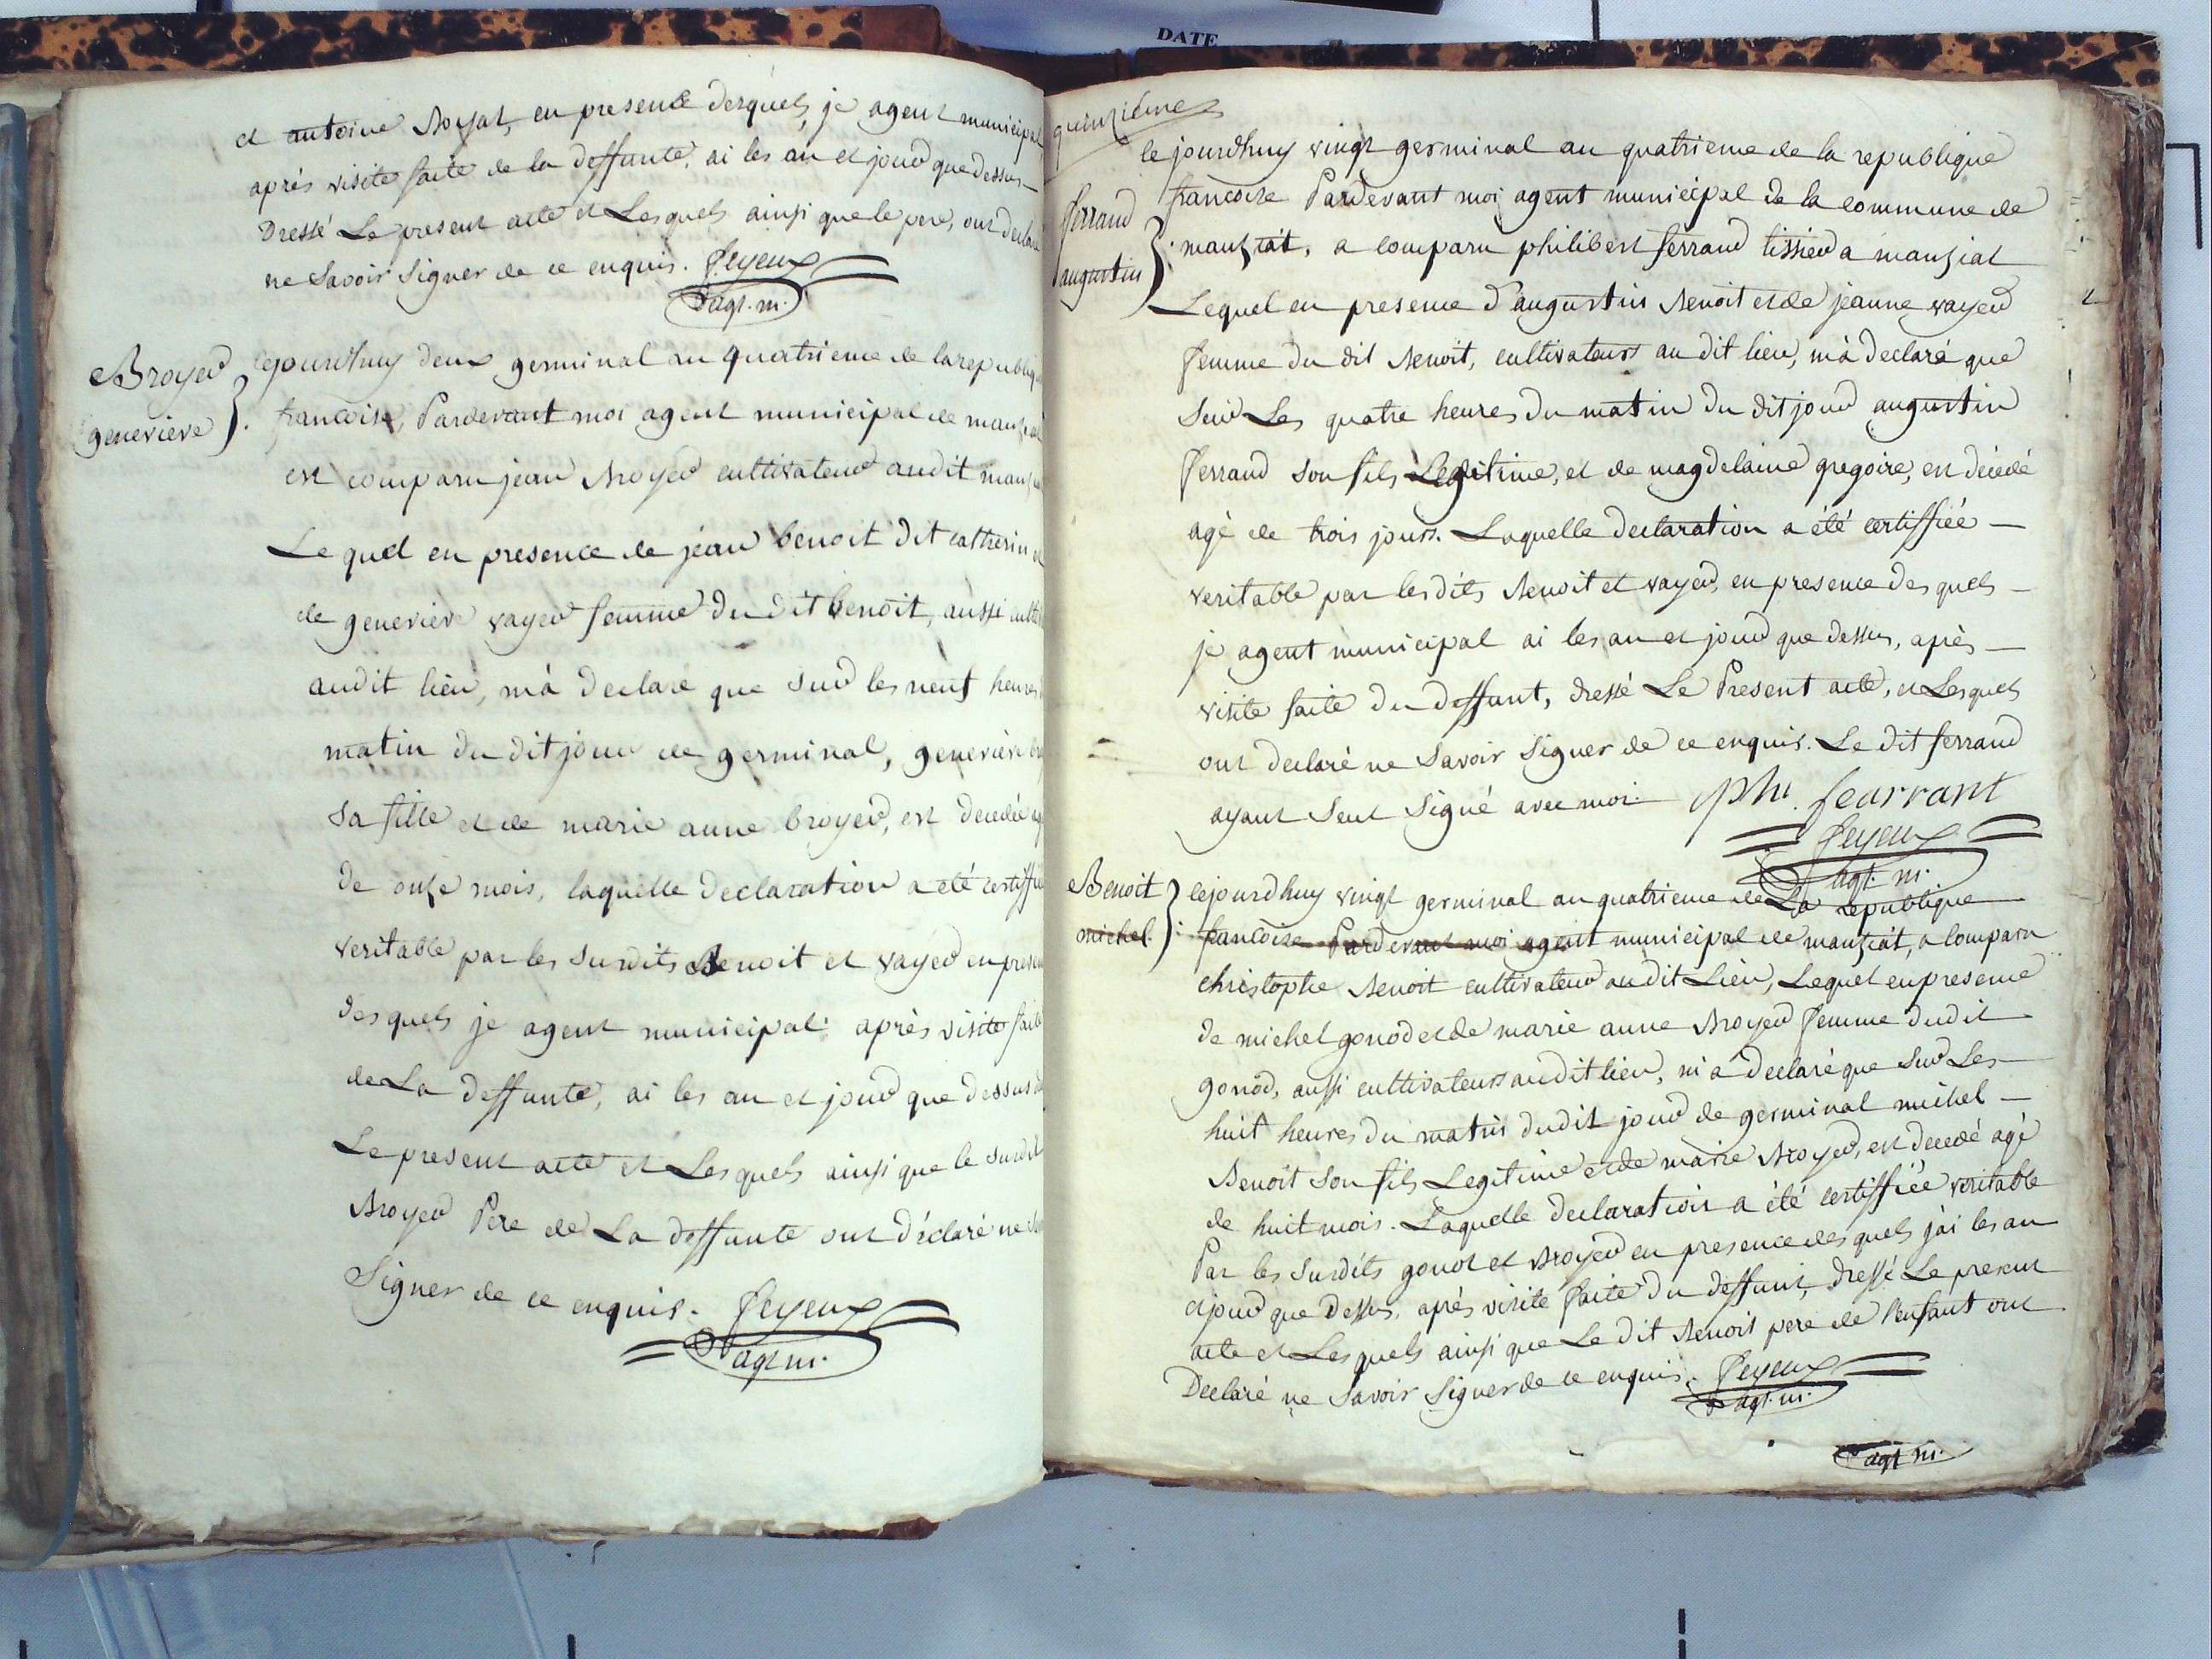 DATE
et antoine Broyat, en presence desquels, je agent municipal
aprés visite faite de la deffunte, ai les an et jour que dessus
Dressé Le present acte et Lesquels ainsi que le pere, ont declaré
ne Savoir Signer de ce enquis. Feyeux
agt. m.
Broyer
genevieve
lejourdhuy deux germinal an quatrieme de la republique
francoise, Pardevant moi agent municipal de manziat
est comparu jean Broyer cultivateur audit manziat
Le quel en presence de jean benoit dit catherin et
de genevieve vayer femme du dit benoit, aussi cult
audit lieu, m'a declaré que sur les neuf heures
matin du dit jour de germinal, genevieve
sa fille et de marie anne broyer, est decedée
de onze mois, laquelle declaration a été certiffiée
veritable par les susdits Benoit et vayer en presence
des quels je agent municipal aprés visite faite
de La deffunte, ai les an et jour que dessus
Le present acte et Lesquels ainsi que le susdit
Broyer Pere de La deffunte ont déclaré ne
Signer de ce enquis. Feyeux
agt m.
quinzieme
le jourdhuy vingt germinal an quatrieme de la republique
ferrand
augustin
francoise Pardevant moi agent municipal de la commune de
manziat, a comparu philibert ferrand tissier a manziat
Lequel en presence d'augustin Benoit et de jeanne vayer
femme du dit Benoit, cultivateurs au dit lieu, m'à declaré que
Sur Les quatre heures du matin du dit jour augustin
ferrand son fils Legitime, et de magdelaine gregoire, est décédé
agé de trois jours. Laquelle declaration a été certiffiée
veritable par lesdits Benoit et vayer, en presence des quels
je agent municipal ai les an et jour que dessus, aprés
visite faite du deffunt, dressé Le Present acte, et Lesquels
ont declaré ne Savoir Signer de ce enquis. Le dit ferrand
ayant Seul Signé avec moi. Phi. fearrant
Feyeux
agt. m.
Benoit
michel
lejourdhuy vingt germinal an quatrieme de La republique
francoise Pardevant moi agent municipal de manziat, a comparu
christophe Benoit cultivateur audit Lieu, Lequel en presence
de michel gonod et de marie anne Broyer femme dudit
gonod, aussi cultivateurs audit lieu, m'a declaré que Sur Les
huit heures du matin dudit jour de germinal michel
Benoit Son fils Legitime et de marie Broyer, est decedé agé
de huit mois. Laquelle declaration a été certiffiée veritable
Par les Susdits gonot et Broyer en presence des quels j'ai les an
et jour que Dessus, aprés visite faite du deffunt, dressé Le present
acte et Lesquels ainsi que Le dit Benoit pere de l'enfant ont
Declaré ne Savoir Signer de ce enquis. Feyeux
agt. m.
agt m.